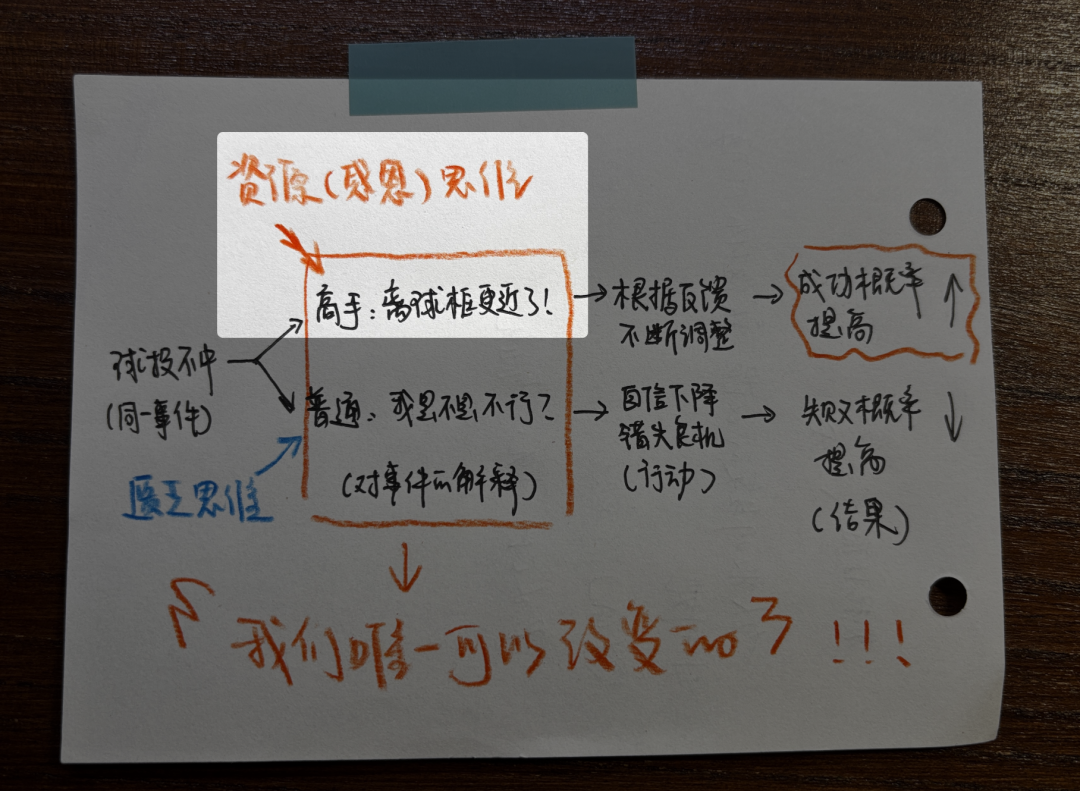 资源(感恩)思维
高手:离球框更近了!
根据反馈
不断调整
成功概率
提高
球投不中
(同一事件)
普通:我是不是不行?
自信下降
错失良机
(行动)
失败概率
提高
(结果)
匮乏思维
(对事件的解释)
「我们唯一可以改变的」!!!